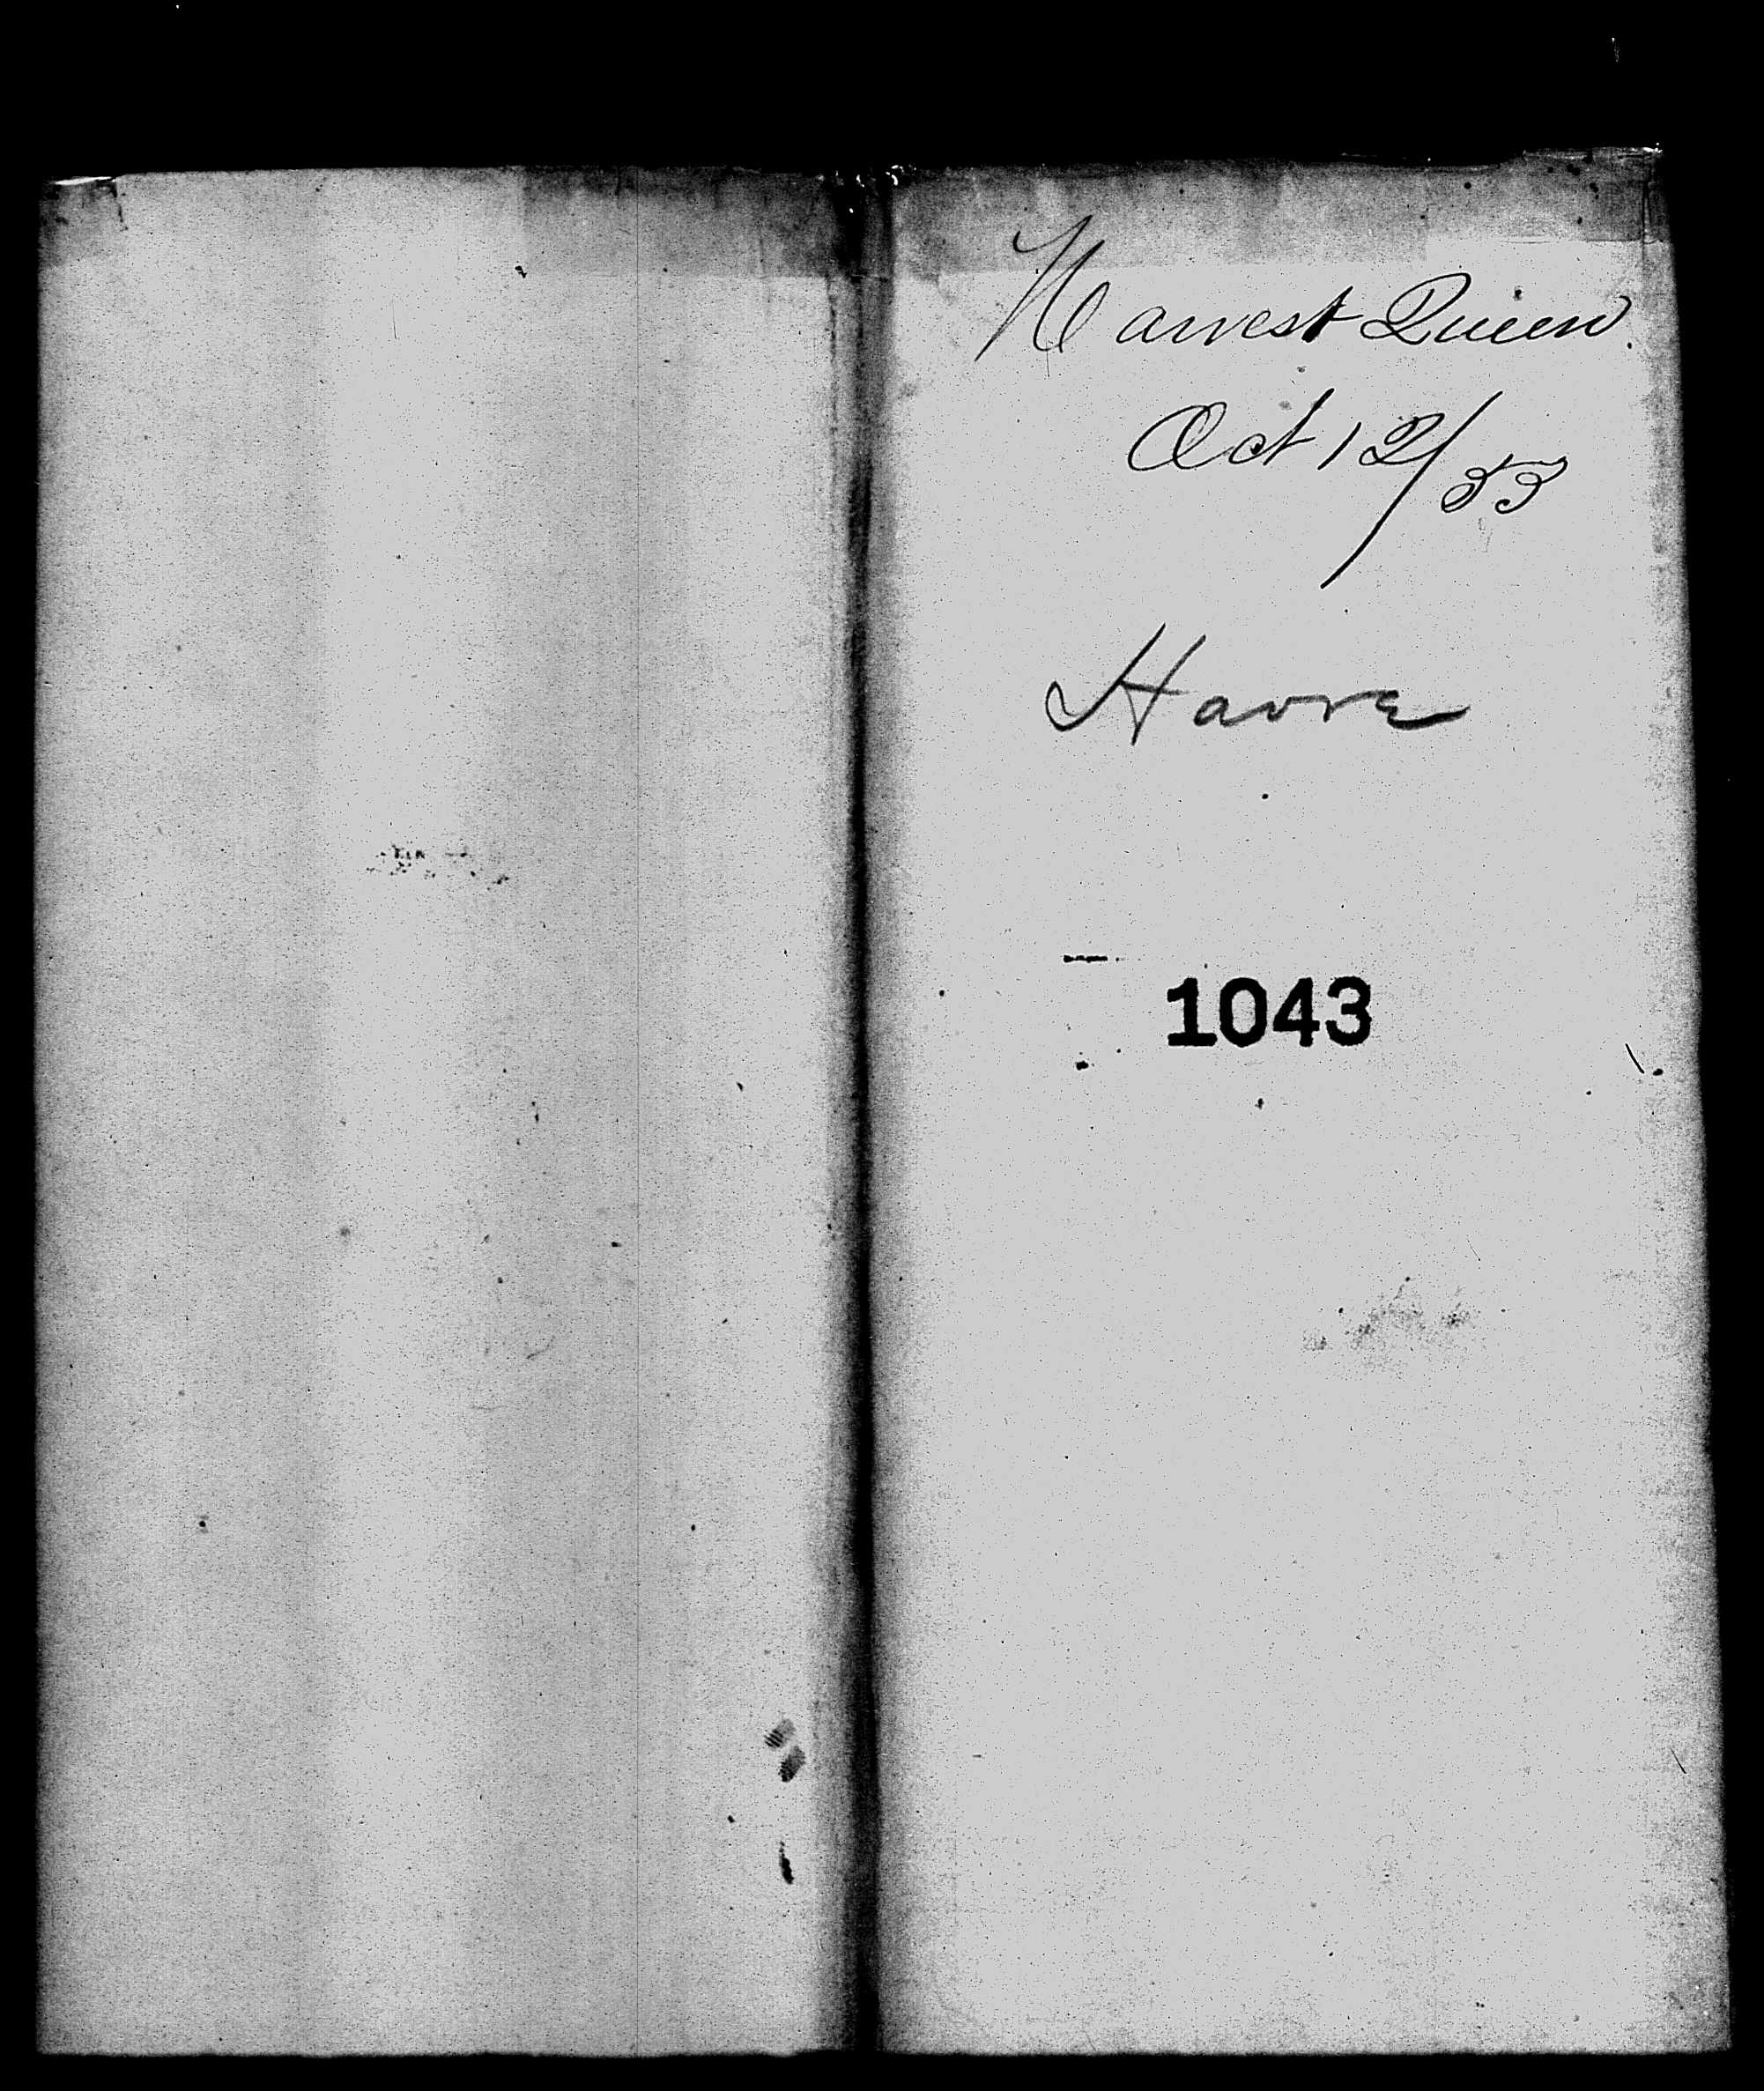 Harvest Queen.
Oct 12/53
Havre
1043